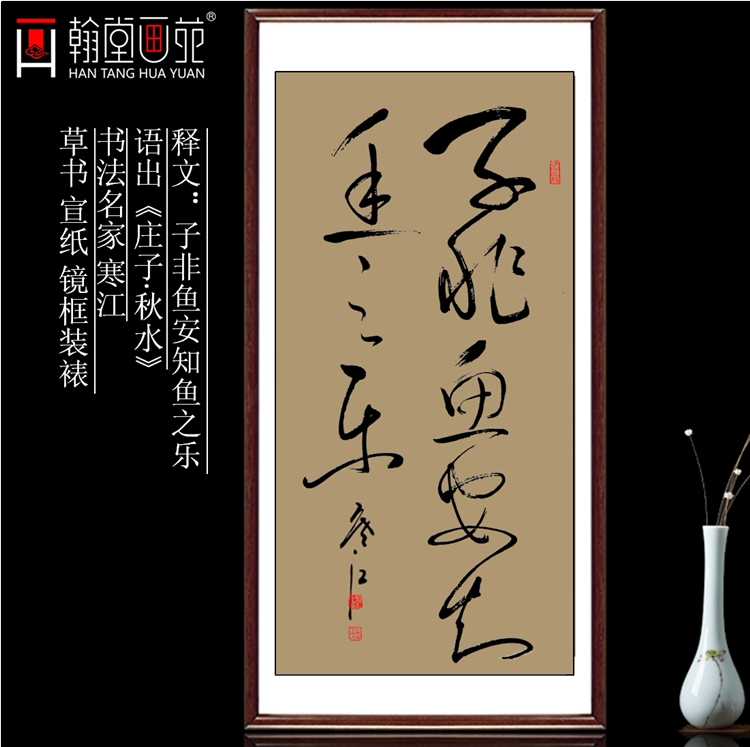 翰堂画苑®
HAN TANG HUA YUAN
释文：子非鱼安知鱼之乐
语出《庄子·秋水》
书法名家 寒江
草书 宣纸 镜框装裱
子非鱼安知
鱼之乐
寒江